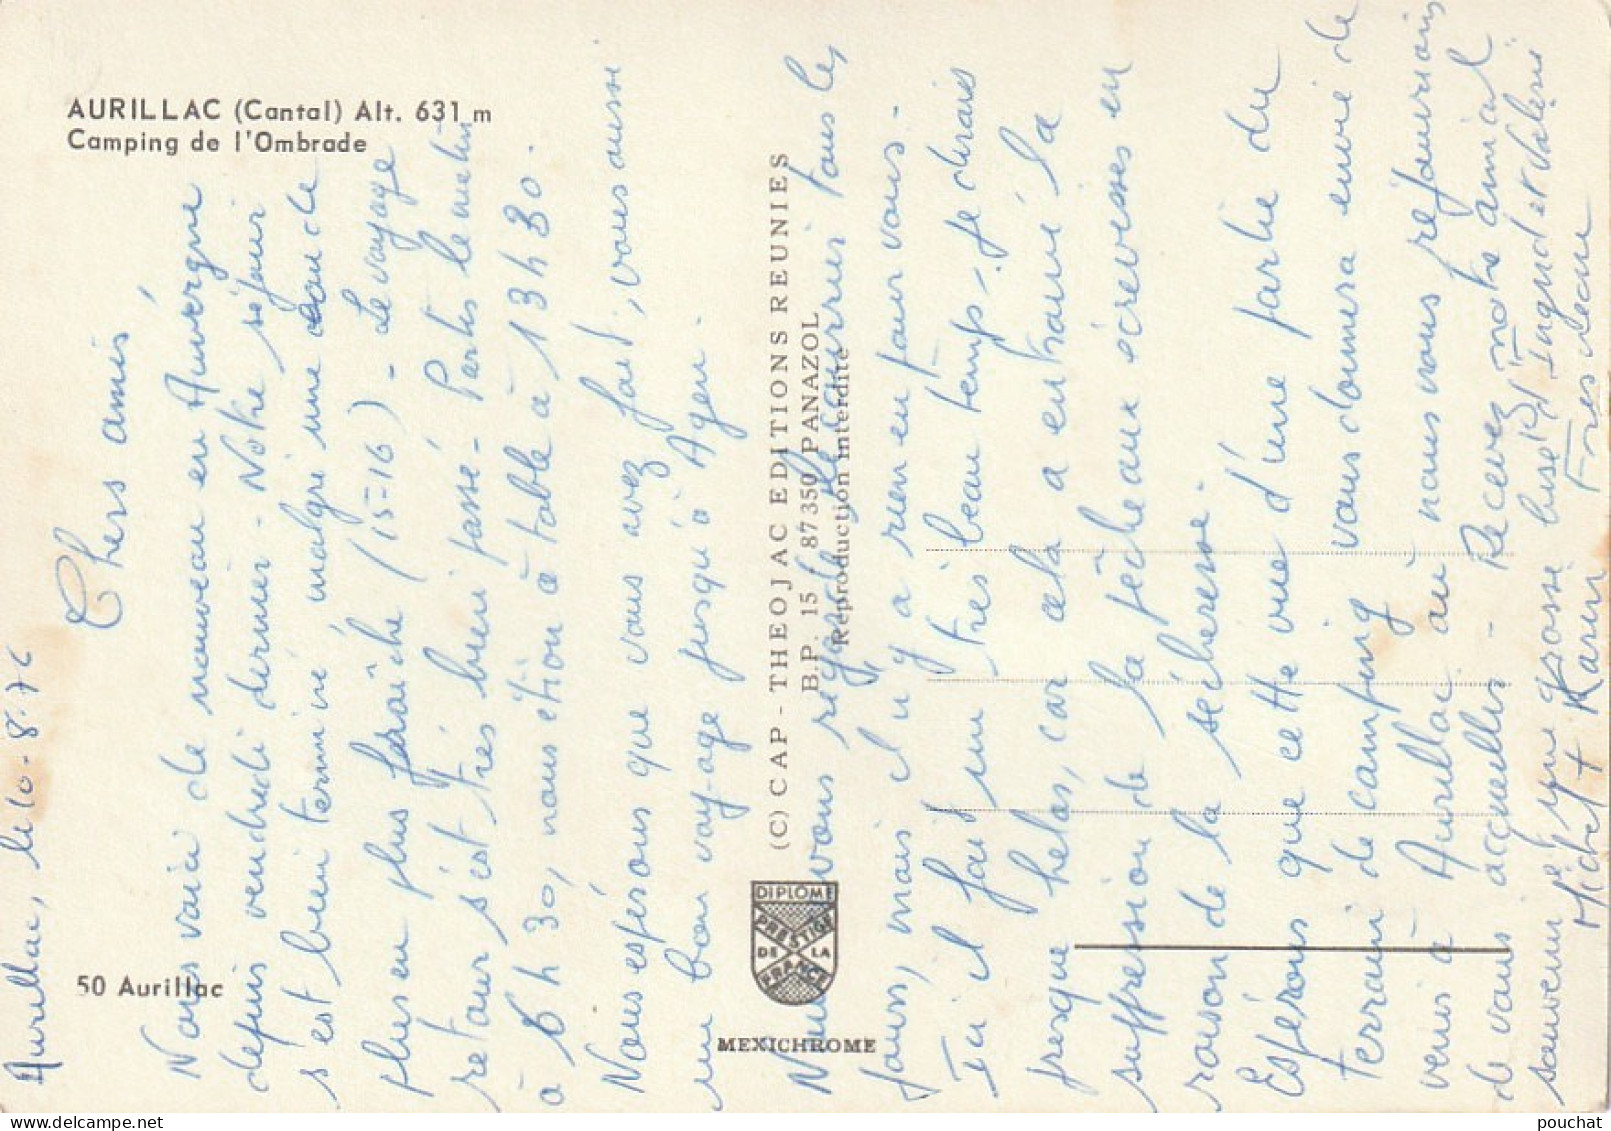 AURILLAC (Cantal) Alt. 631 m
Camping de l'Ombrade
50 Aurillac
(C) CAP - THEOJAC EDITIONS REUNIES
B.P. 15 87350 PANAZOL
Reproduction interdite
DIPLÔME
PRESTIGE
DE LA
FRANCE
MEXICHROME
Aurillac, le 10-8-76
Chers amis,
Nous voici de nouveau en Auvergne
depuis vendredi dernier - Notre séjour
s'est bien terminé malgré une eau de
plus en plus fraîche (15-16) - Le voyage
retour s'est très bien passé - Partis le matin
à 6h30, nous étion à table à 13h30.
Nous espérons que vous avez fait, vous aussi
un bon voyage jusqu'à Agen.
Nous vous le courrier tous les
jours, mais il n'y a rien en pour vous -
Ici il fait un très beau temps - je dirais
presque helas, car cela a entrainé la
suppression de la pêche aux écrevisses en
raison de la sécheresse -
Espérons que cette vue d'une partie du
terrain de camping vous donnera envie de
venir à Aurillac où nous nous réjouirions
de vous accueillir - Recevez notre amical
souvenir une grosse bise d'Ingrid et Valérie
Michel Karin